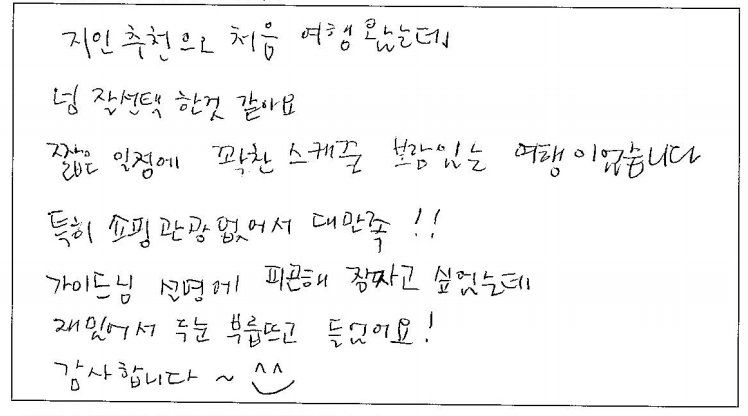 지인 추천으로 처음 여행 왔는데,
넘 잘선택 한것 같아요
짧은 일정에 꽉찬 스케줄 보람있는 여행이었습니다
특히 쇼핑관광없어서 대만족 !!
가이드님 설명에 피곤해 잠자고 싶었는데
재밌어서 두눈 부릅뜨고 들었어요!
감사합니다 ~ ^^